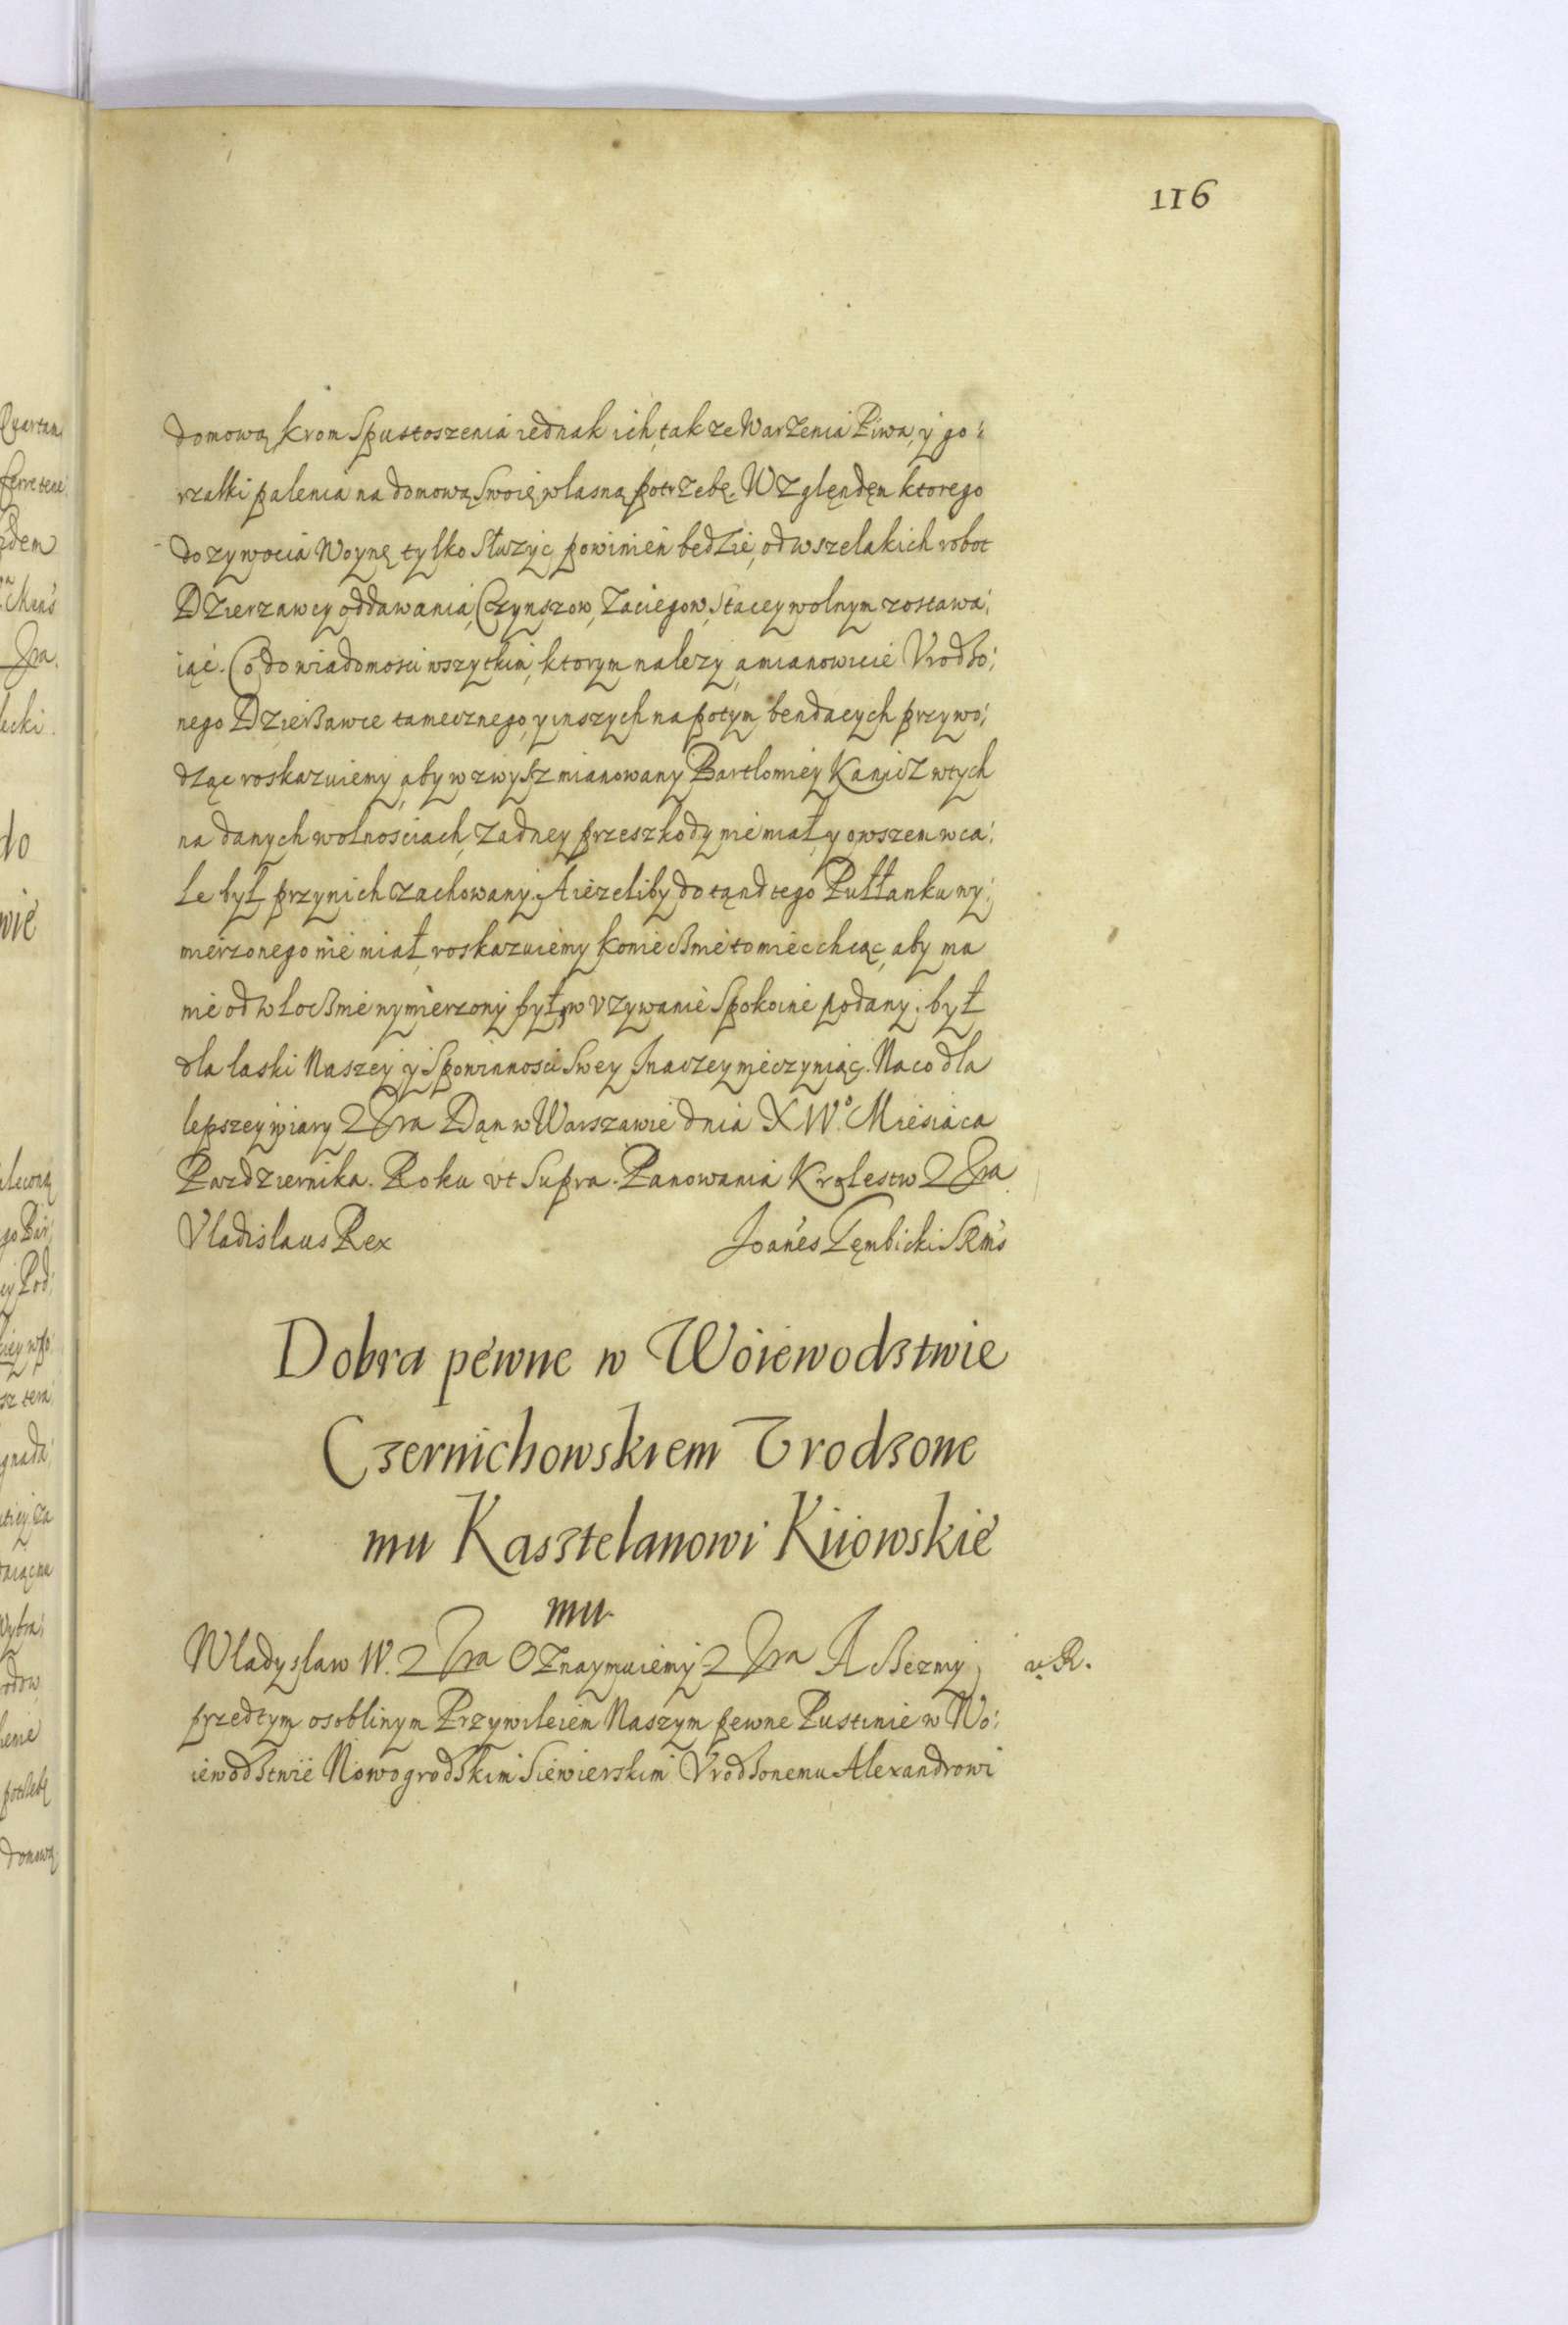 116
domową krom Spustoszenia iednak ich, tak ze Warzenia Piwa, y go:
rzałki palenia na domową Swoię własną potrzebę. Względęm ktorego
do zywocia Woynę tylko Służyc powinień bedzie, od wszelakich robot
Dzierzawcy oddawania, Czynszow, Zaciegow, Stacey wolnym zostawa:
iąc. Co do wiadomosci wszytkim, ktorym nalezy, a mianowicie Vrodzo:
nego Dzierżawce tamecznego, y inszych na potym bendacych przywo:
dząc roskazuiemy, aby wzwysz mianowany Bartlomiey Kanicz w tych
na danych wolnościach, Zadney przeszkody nie miał, y owszem wca:
le był przy nich zachowany. A iezeliby do tąnd tego Pułłanku wy:
mierzonego nie miał, roskazuiemy koniecznie to miec chcąc, aby ma
nie odwłocznie wymierzony był, w vzywanie Spokoine podany był
dla laski Naszey y Spowinnosci Swey Inaczey nieczyniąc. Na co dla
lepszey wiary 2 Dan w Warszawie dnia XIV° Miesiaca
Pazdziernika. Roku vt Supra. Panowania Krolestw 2
Vladislaus Rex Joañes Gęmbicki SRM's
Dobra pewne w Woiewodztwie
Czernichowskiem Vrodzone
mu Kasztelanowi Kiiowskie
mu.
Wladyslaw IV. 2 Oznaymuiemy 2 A Bezmy
przedtym osobliwym Przywileiem Naszym pewne Pustinie w Wo:
iewodztwie Nowogrodzkim Siewierskim Vrodzonemu Alexandrowi